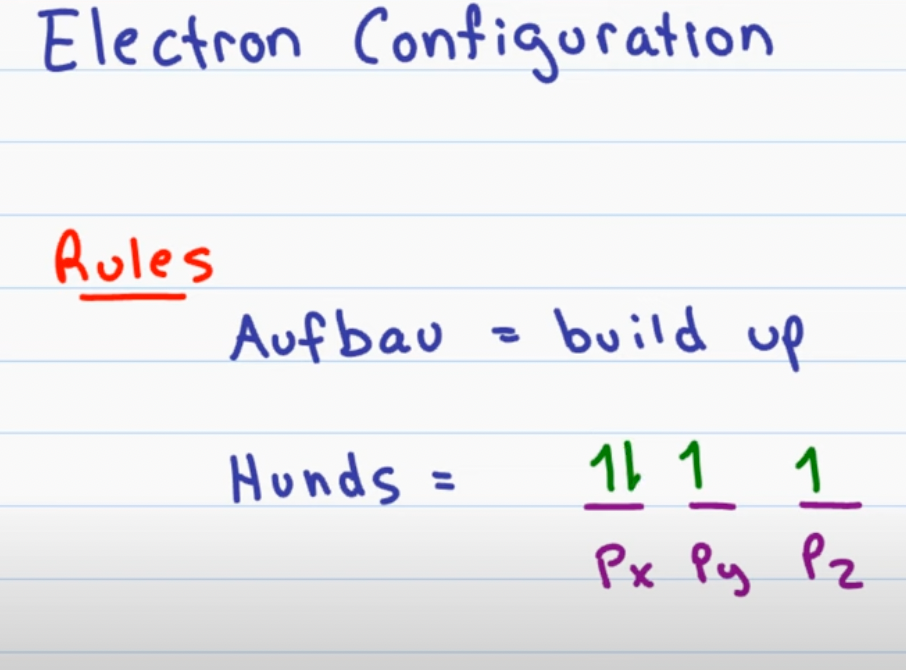 Electron Configuration
Rules
Aufbau = build up
Hunds = 1l 1 1
Px Py Pz